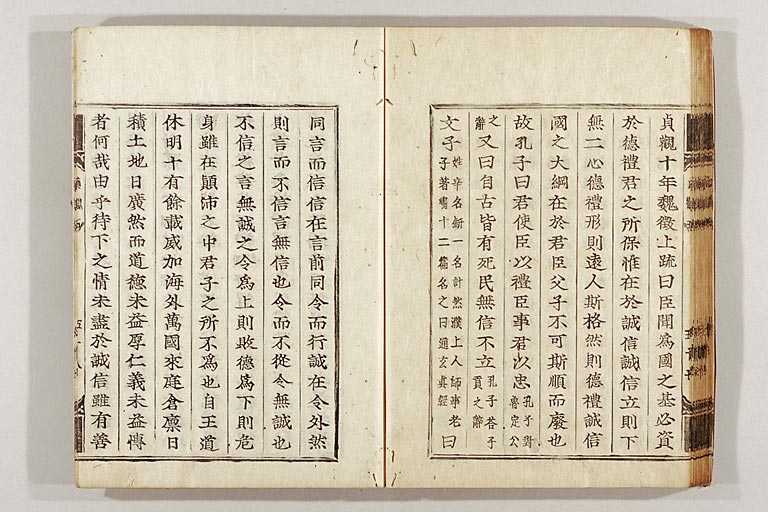 貞觀十年魏徵上疏曰臣聞爲國之基必資
於德禮君之所保惟在於誠信誠信立則下
無二心德禮形則遠人斯格然則德禮誠信
國之大綱在於君臣父子不可斯須而廢也
故孔子曰君使臣以禮臣事君以忠孔子對魯定公
之辭又曰自古皆有死民無信不立孔子答子貢之辭
文子姓辛名鈃一名計然濮上人師事老子著書十二篇名之曰通玄眞經曰
同言而信信在言前同令而行誠在令外然
則言而不信言無信也令而不從令無誠也
不信之言無誠之令爲上則敗德爲下則危
身雖在顚沛之中君子之所不爲也自王道
休明十有餘載威加海外萬國來庭倉廩日
積土地日廣然而道德未益厚仁義未益博
者何哉由乎待下之情未盡於誠信雖有善